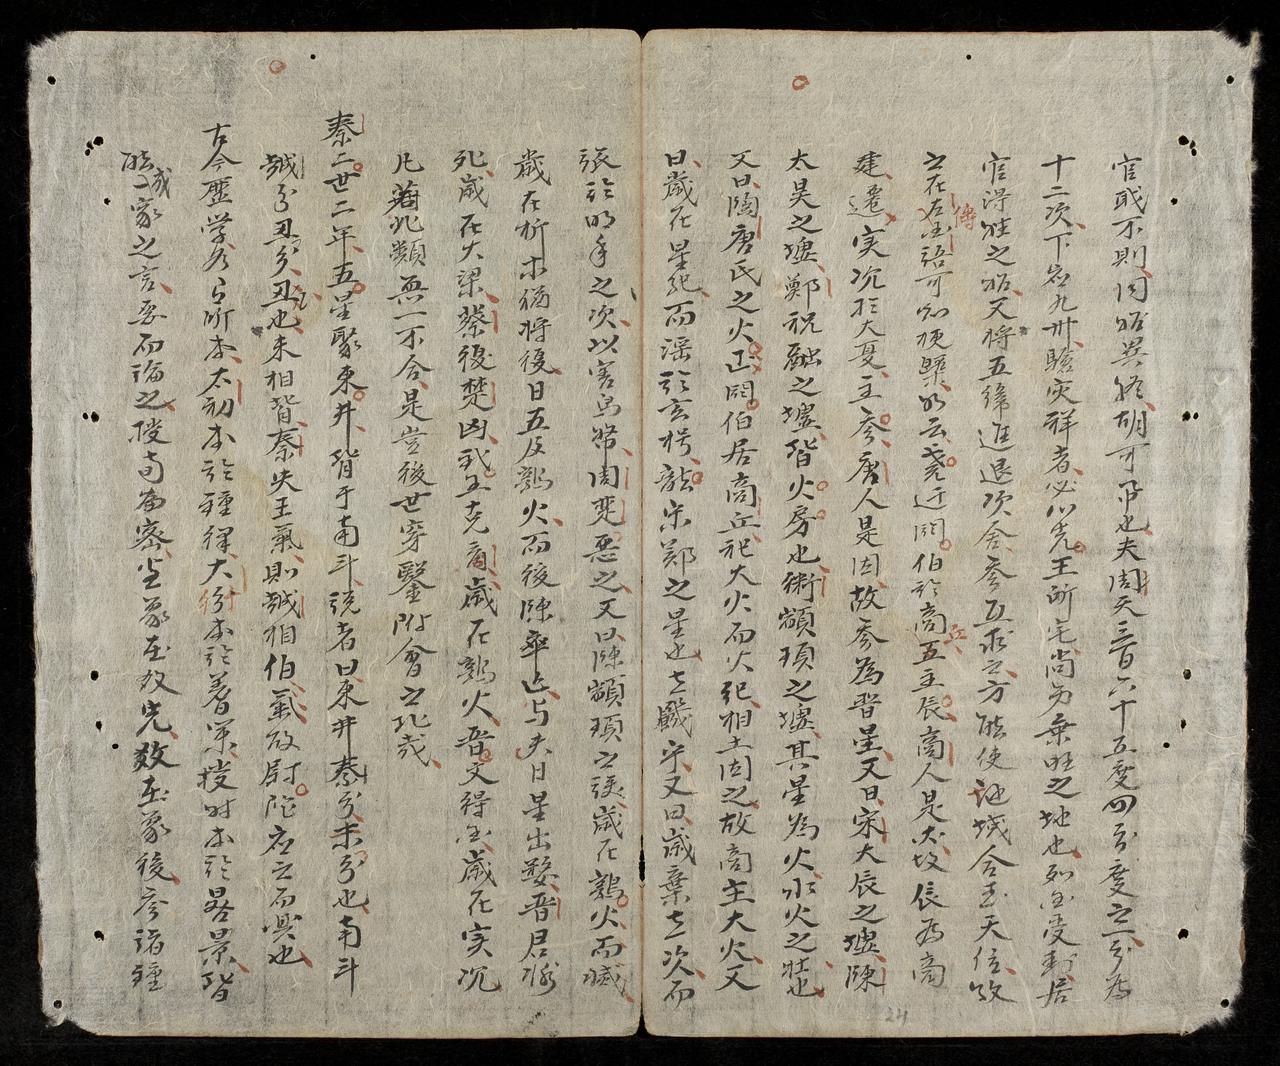 官或不則同占異終胡可爲也夫周天三百六十五度四分度之一分爲
十二次下應九州瞻灾祥者必以先王所宅尚易乘旺之地也如國受封居
官得姓之占又將五緯進退次舍參互求之方能使地域合在天位攷
之在左傳國語可知梗槩如云堯遷閼伯於商丘主辰商人是因故辰爲商
建遷实沉於大夏主參唐人是因故參爲晋星又曰宋大辰之墟陳
太昊之墟鄭祝融之墟皆火房也衛顓頊之墟其星爲火水火之牡也
又曰陶唐氏之火正閼伯居商丘祀大火而火紀相土因之故商主大火又
曰歲在星紀而滛於玄枵龍宋鄭之星也主饑宋又曰歲棄其次而
張於明年之次以害鳥帑周楚惡之又曰陳顓頊之族歲在鶉火而滅
歲在析木猶將復曰五及鶉火而後陳卒亡与夫曰星出婺晋君將
死歲在大梁蔡復楚凶武王克商歲在鶉火晋文得國歲在实沉
凡舊此類無一不合是豈後世穿鑿附會之比哉
秦二世二年五星聚東井皆于南斗說者曰東井秦分未分也南斗
越分丑分丑也未相背秦失王氣則越相伯氣故尉陀應之而興也
古今歷学各有所本太初本於鍾律大衍本於蓍策授时本於晷景皆
能成一家之言要而論之授旬爲密坐蒙在效先效在蒙後彦諸鍾